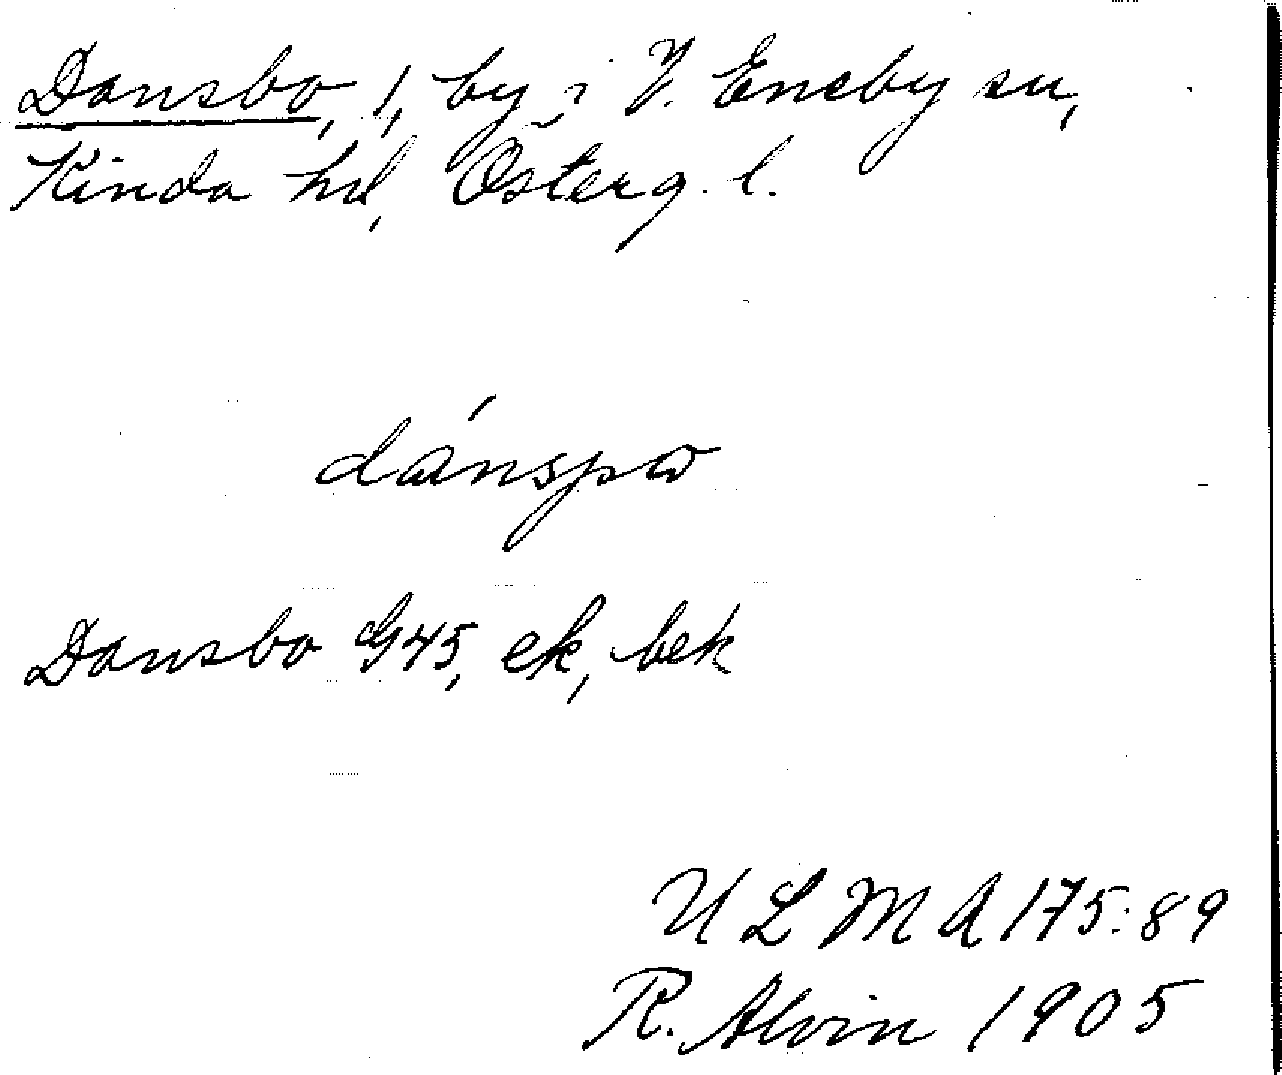 Dansbo, 1, by i V. Eneby sn,
Kinda hd, Österg. l.
dánspω
Dansbo G45, ek, bek
U L M A 175:89
R. Alvin 1905